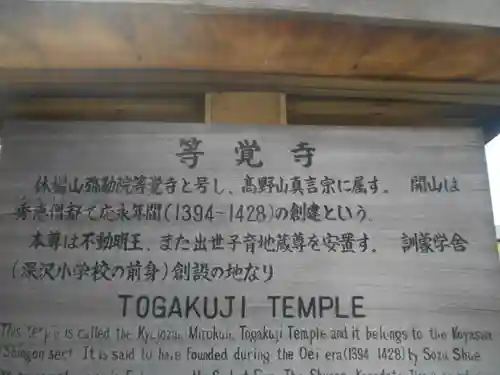 等覚寺
休場山弥勒院等覚寺と号し、髙野山真言宗に属す。 開山は
秀恵僧都で応永年間(1394-1428)の創建という。
本尊は不動明王、また出世子育地蔵尊を安置す。 訓蒙学舎
(深沢小学校の前身)創設の地なり
TOGAKUJI TEMPLE
This temple is called the Kyujozan Mirokuin Togakuji Temple and it belongs to the Koyasan
Shingon sect. It is said to have founded during the Oei era (1394 1428) by Sozu Shue